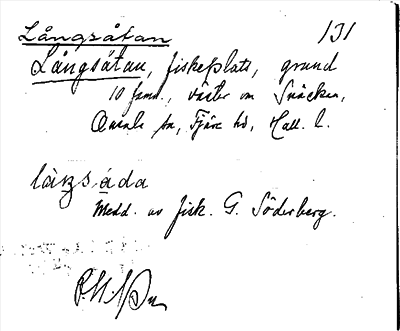 Långsåtan 131
Långsåtan, fiskeplats, grund
10 famn., väster om Snäcken,
Onsala sn, Fjäre hd, Hall. l.
Medd. av fisk. G. Söderberg.